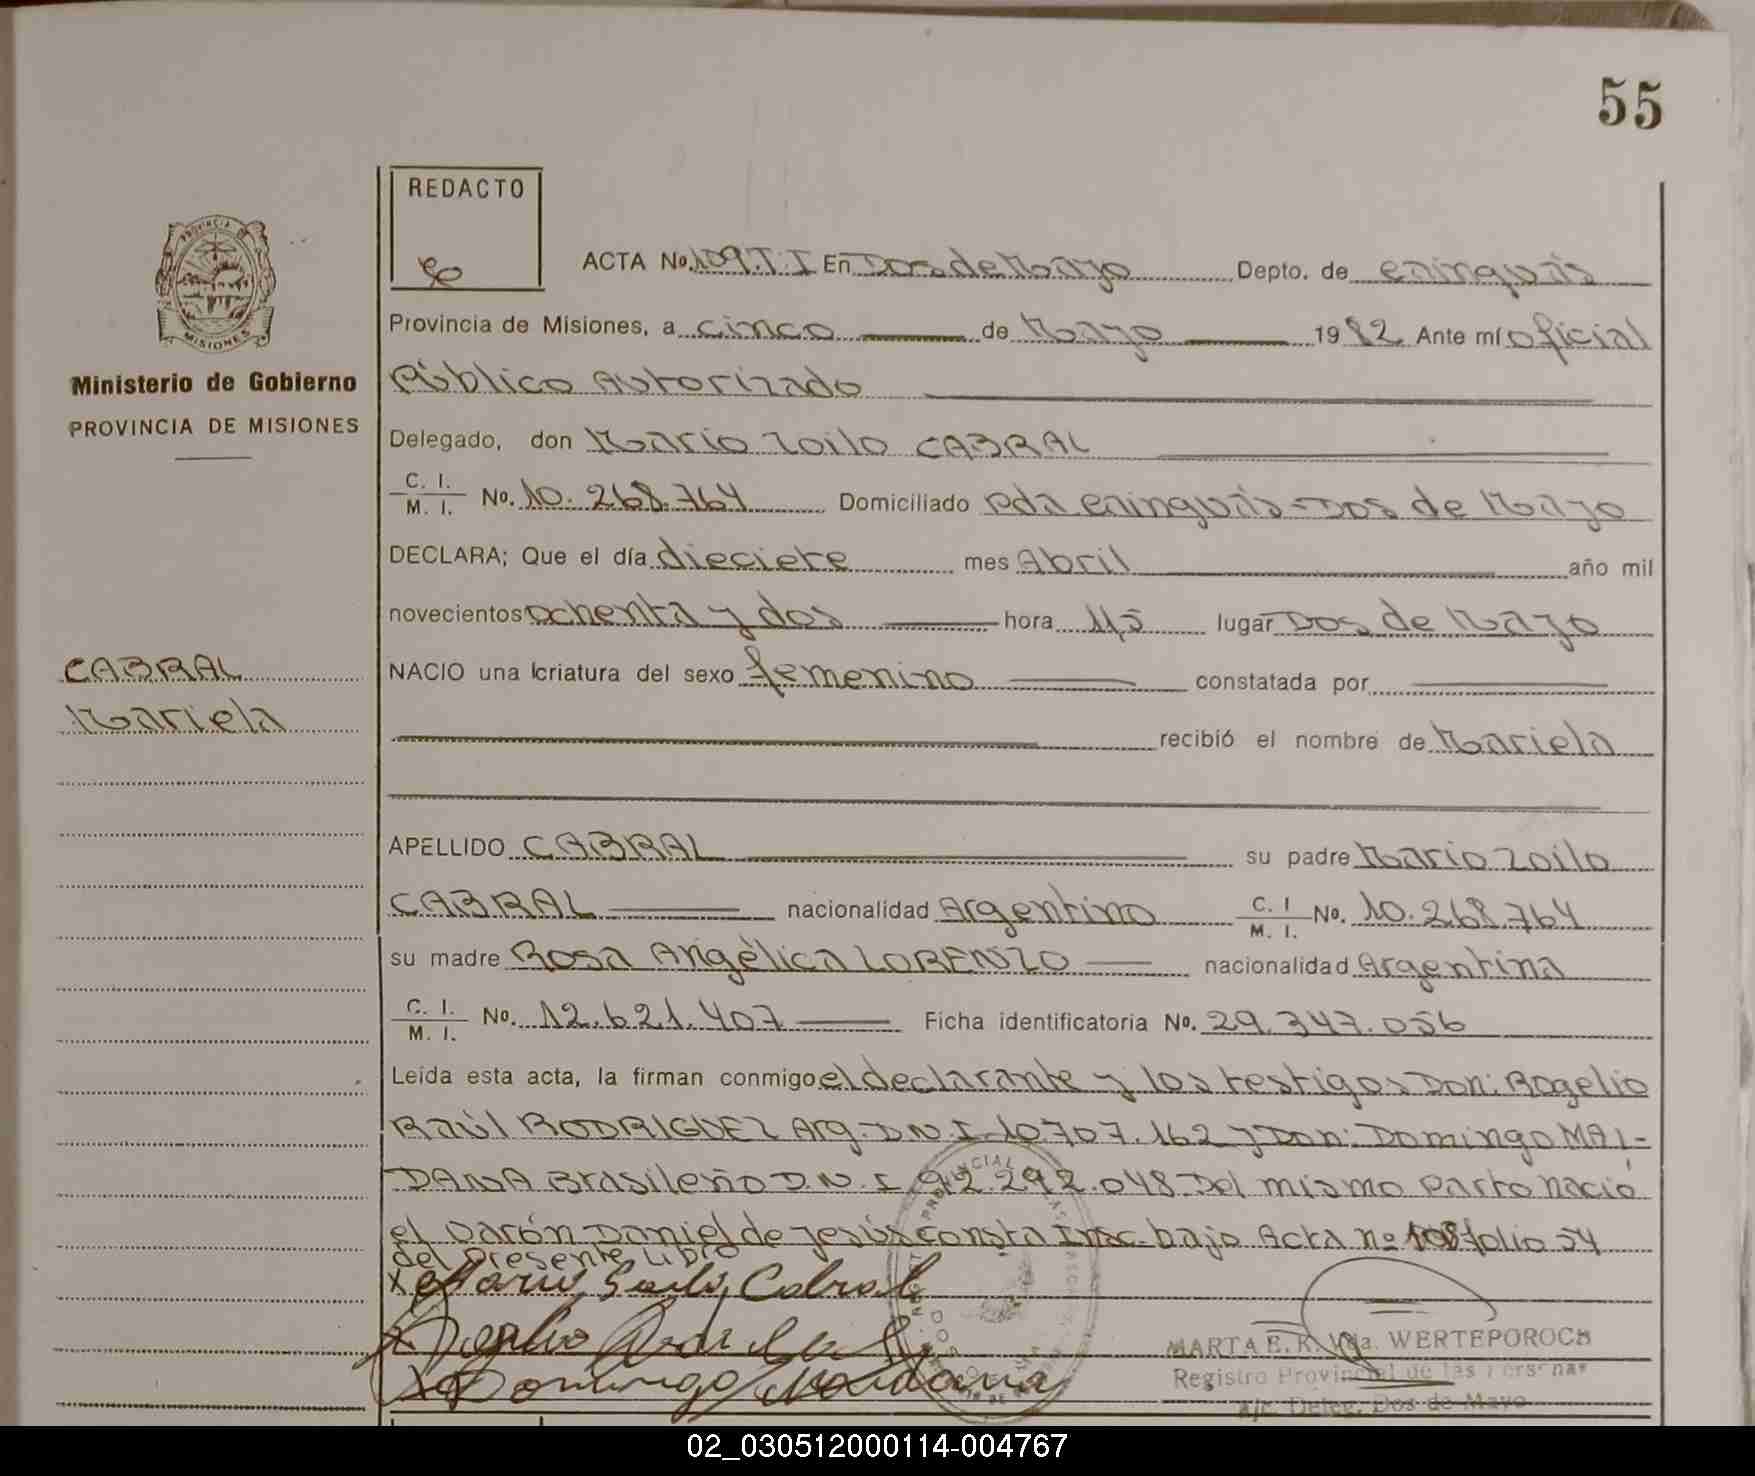 55
REDACTO
ACTA No. 109.T.I En Dos de Mayo Depto. de Cainguás
Provincia de Misiones, a cinco de Mayo 1982 Ante mí oficial
Público Autorizado
PROVINCIA DE
MISIONES
Ministerio de Gobierno
PROVINCIA DE MISIONES
Delegado, don Mario Zoilo CABRAL
C. I.
M. I. No. 10.268.764 Domiciliado Pda Cainguás-Dos de Mayo
DECLARA; Que el día dieciete mes Abril año mil
novecientos ochenta y dos hora 11,5 lugar Dos de Mayo
CABRAL
Mariela
NACIO una criatura del sexo femenino constatada por
recibió el nombre de Mariela
APELLIDO CABRAL su padre Mario Zoilo
CABRAL nacionalidad Argentino C. I M. I. No. 10.268.764
su madre Rosa Angélica LORENZO nacionalidad Argentina
C. I.
M. I. No. 12.621.407 Ficha identificatoria No. 29.347.056
Leída esta acta, la firman conmigo el declarante y los testigos Don: Rogelio
Raúl RODRIGUEZ Arg. D.N.I. 10.707.162 y Don: Domingo MAI-
DANA Brasileño D.N.I 92.292.048. Del mismo Parto nació
el varón Daniel de Jesús consta Insc. bajo Acta nº 108 folio 54
del Presente Libro
Mario Zoilo Cabral
Domingo Maidana
MARTA E. R. Vda. WERTEPOROCH
Registro Provincial de las Personas
A/c. Deleg. Dos de Mayo
02_030512000114-004767